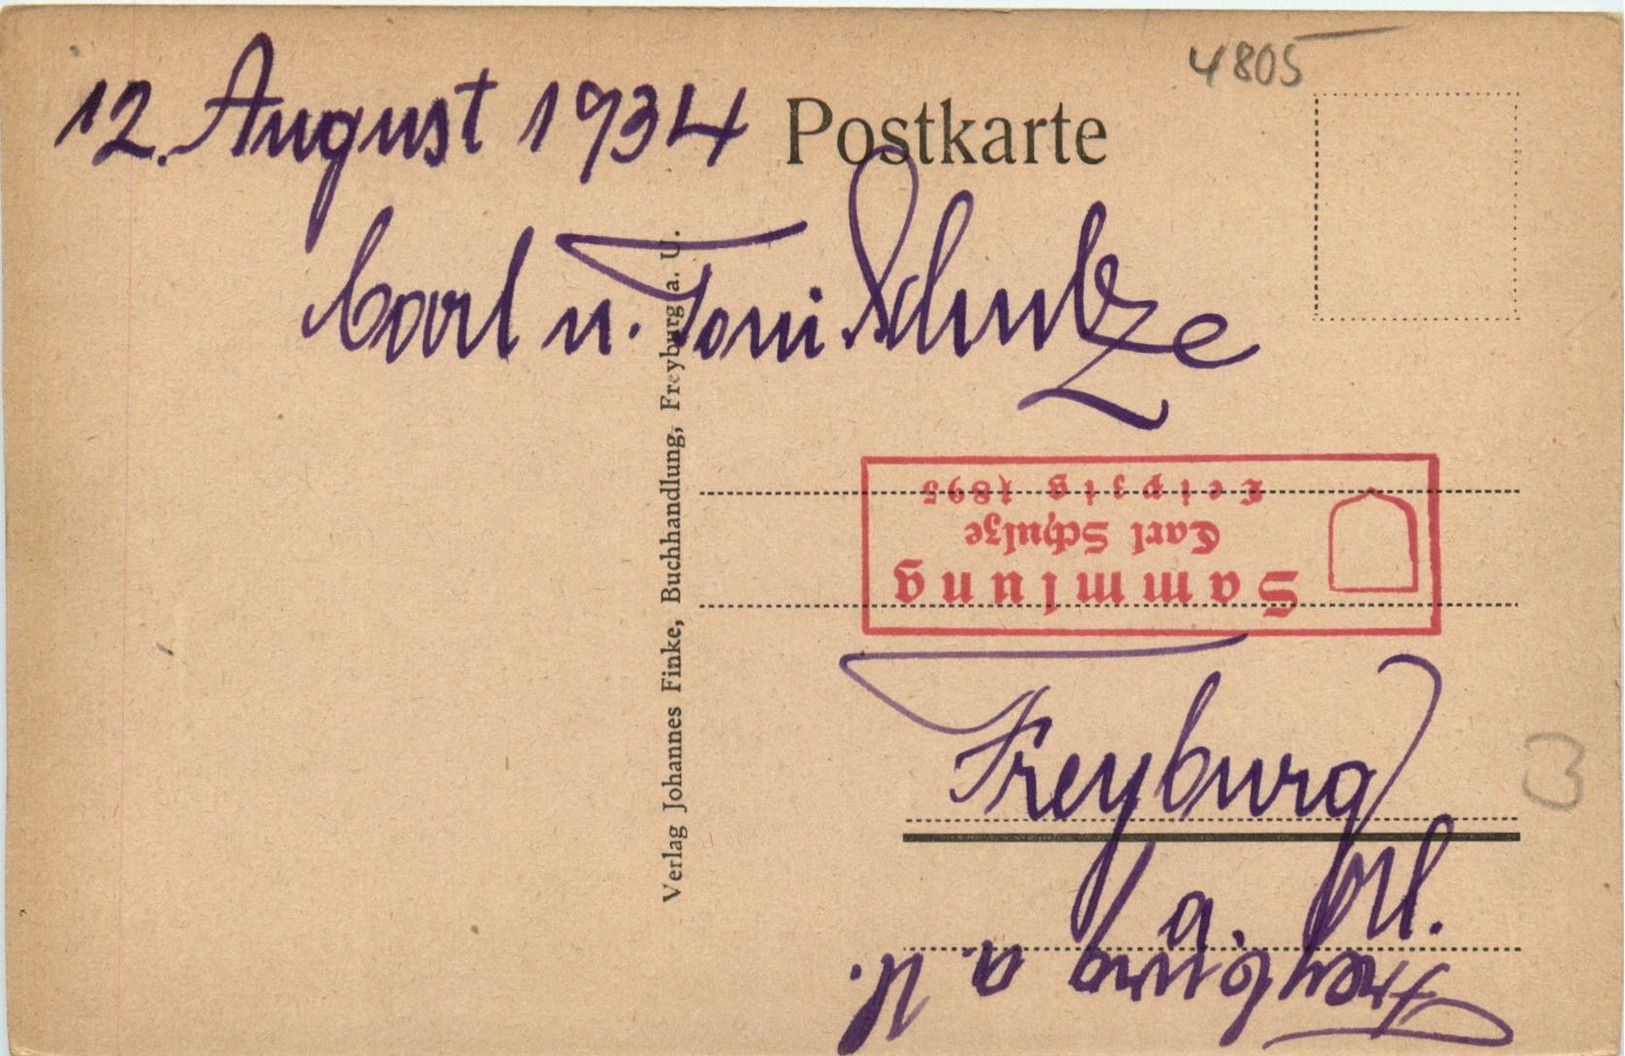 4805
12. August 1934
Postkarte
Carl u. Toni Schulze
Verlag Johannes Finke, Buchhandlung, Freyburg a. U.
Sammlung
Carl Schulze
Leipzig 1895
Freyburg
a. U.
Freyburg a. U.
3